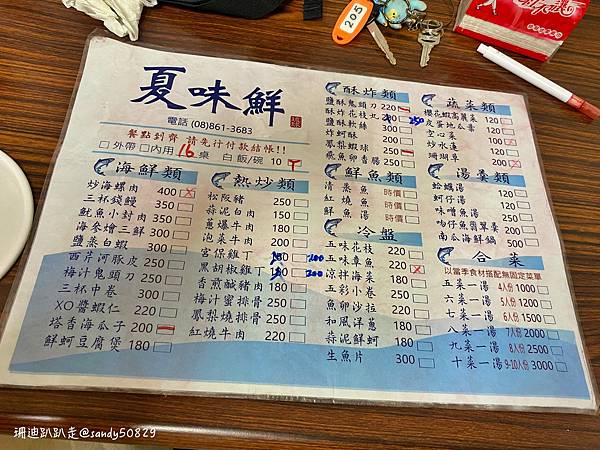 夏味鮮
電話 (08)861-3683
餐點到齊 請先行付款結帳!!
□外帶□內用 16 桌 白飯/碗 10 T
海鮮類
炒海螺肉 400
三杯錢鰻 350
魷魚小封肉 350
海參燴三鮮 300
鹽蒸白蝦 300
西芹河豚皮 250
梅汁鬼頭刀 250
三杯中卷 300
XO醬蝦仁 220
塔香海瓜子 200
鮮蚵豆腐煲 180
熱炒類
松阪豬 250
蒜泥白肉 150
蔥爆牛肉 180
泡菜牛肉 200
宮保雞丁 200
黑胡椒雞丁 200
香煎鹹豬肉 180
梅汁蜜排骨 250
鳳梨燒排骨 250
紅燒牛肉 220
酥炸類
鹽酥鬼頭刀 220
酥炸花枝丸 250
鹽酥軟絲
炸蚵酥 200
鳳梨蝦球 220
飛魚卵香腸 250
鮮魚類
清蒸魚 時價
紅燒魚 時價
鮮魚湯 時價
冷盤
五味花枝 220
五味章魚 220
涼拌海菜
五彩小卷 250
魚卵沙拉 220
和風洋蔥
蒜泥鮮蚵 180
生魚片 300
蔬菜類
櫻花蝦高麗菜
皮蛋地瓜葉
空心菜 100
炒水蓮
珊瑚草 200
湯羹類
蛤蠣湯 120
蚵仔湯 120
味噌魚湯
吻仔魚翡翠羹 200
南瓜海鮮鍋
合菜
以當季食材搭配無固定菜單
五菜一湯 4人份 1000
六菜一湯 5人份 1200
七菜一湯 6人份 1500
八菜一湯 7人份 2000
九菜一湯 8人份 2500
十菜一湯 9-10人份 3000
205
珊迪趴趴走@sandy50829